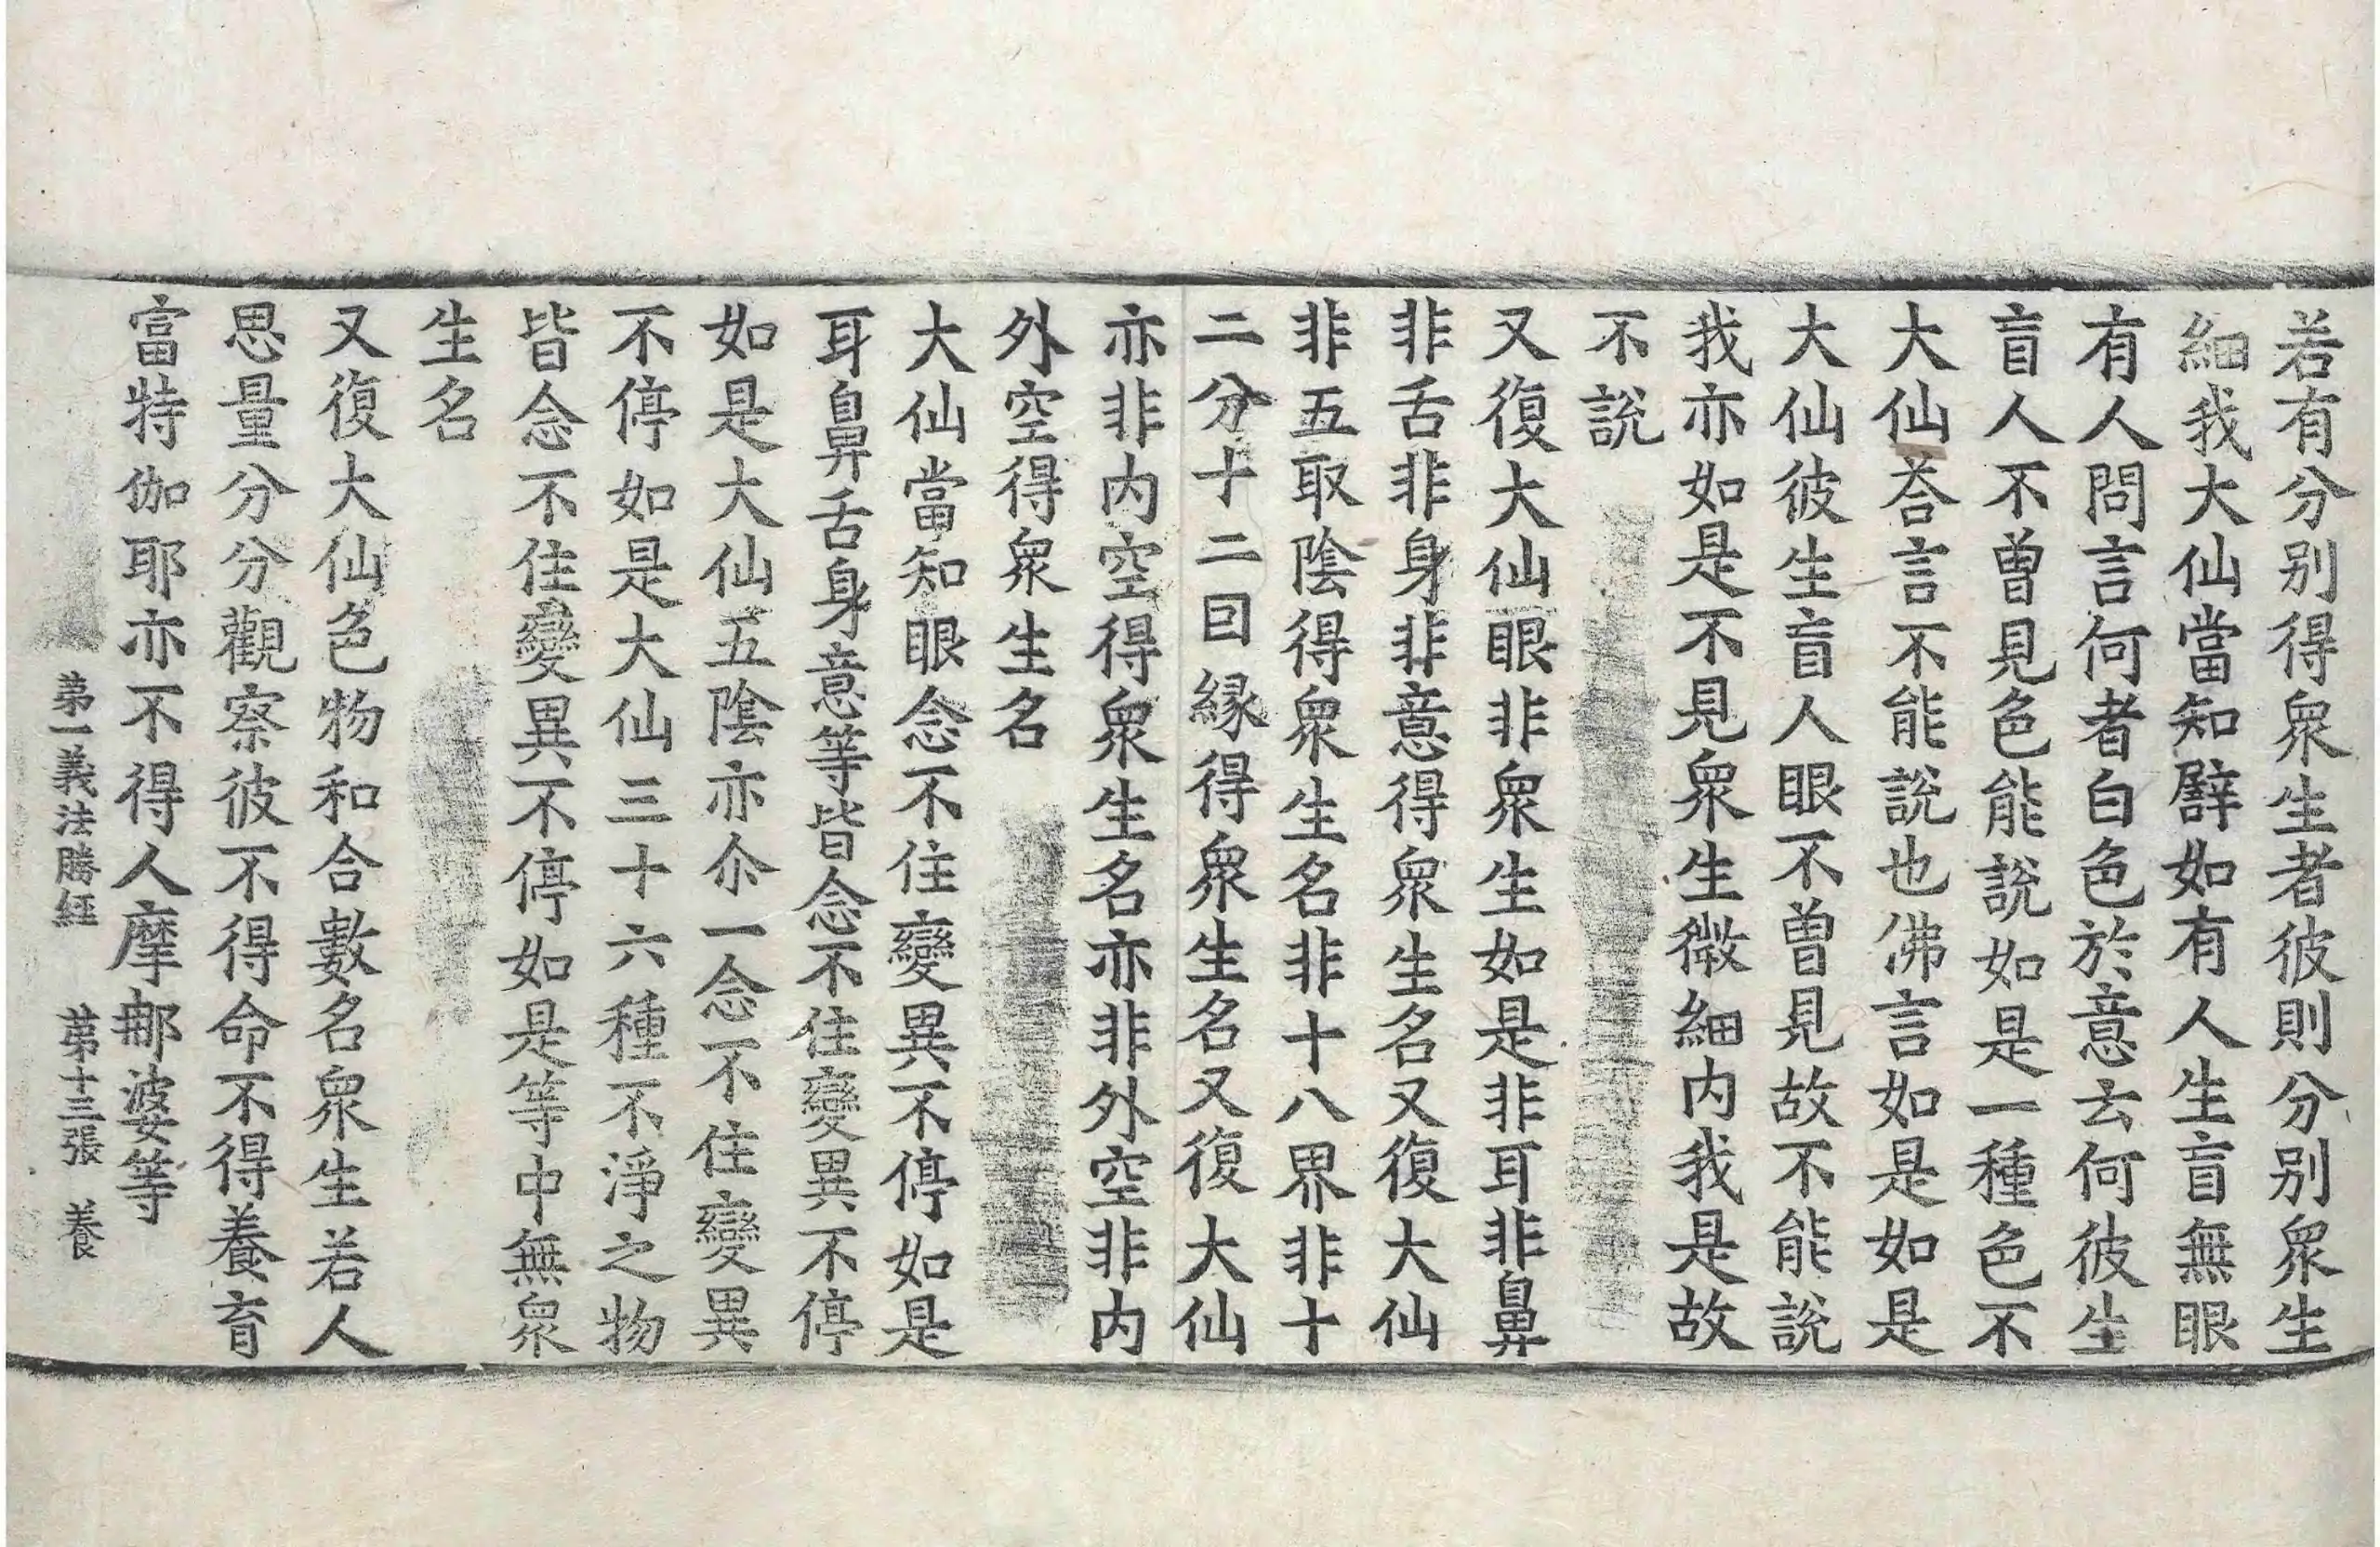 若有分别得衆生者彼則分别衆生
細我大仙當知譬如有人生盲無眼
有人問言何者白色於意云何彼生
盲人不曾見色能說如是一種色不
大仙荅言不能說也佛言如是如是
大仙彼生盲人眼不曾見故不能說
我亦如是不見衆生微細内我是故
不說
又復大仙眼非衆生如是非耳非鼻
非舌非身非意得衆生名又復大仙
非五取陰得衆生名非十八界非十
二分十二回縁得衆生名又復大仙
亦非内空得衆生名亦非外空非内
外空得衆生名
大仙當知眼念不住變異不停如是
耳鼻舌身意等皆念不住變異不停
如是大仙五陰亦尒一念不住變異
不停如是大仙三十六種不淨之物
皆念不住變異不停如是等中無衆
生名
又復大仙色物和合數名衆生若人
思量分分觀察彼不得命不得養育
富特伽耶亦不得人摩郍婆等
苐一義法勝經 苐十三張 養